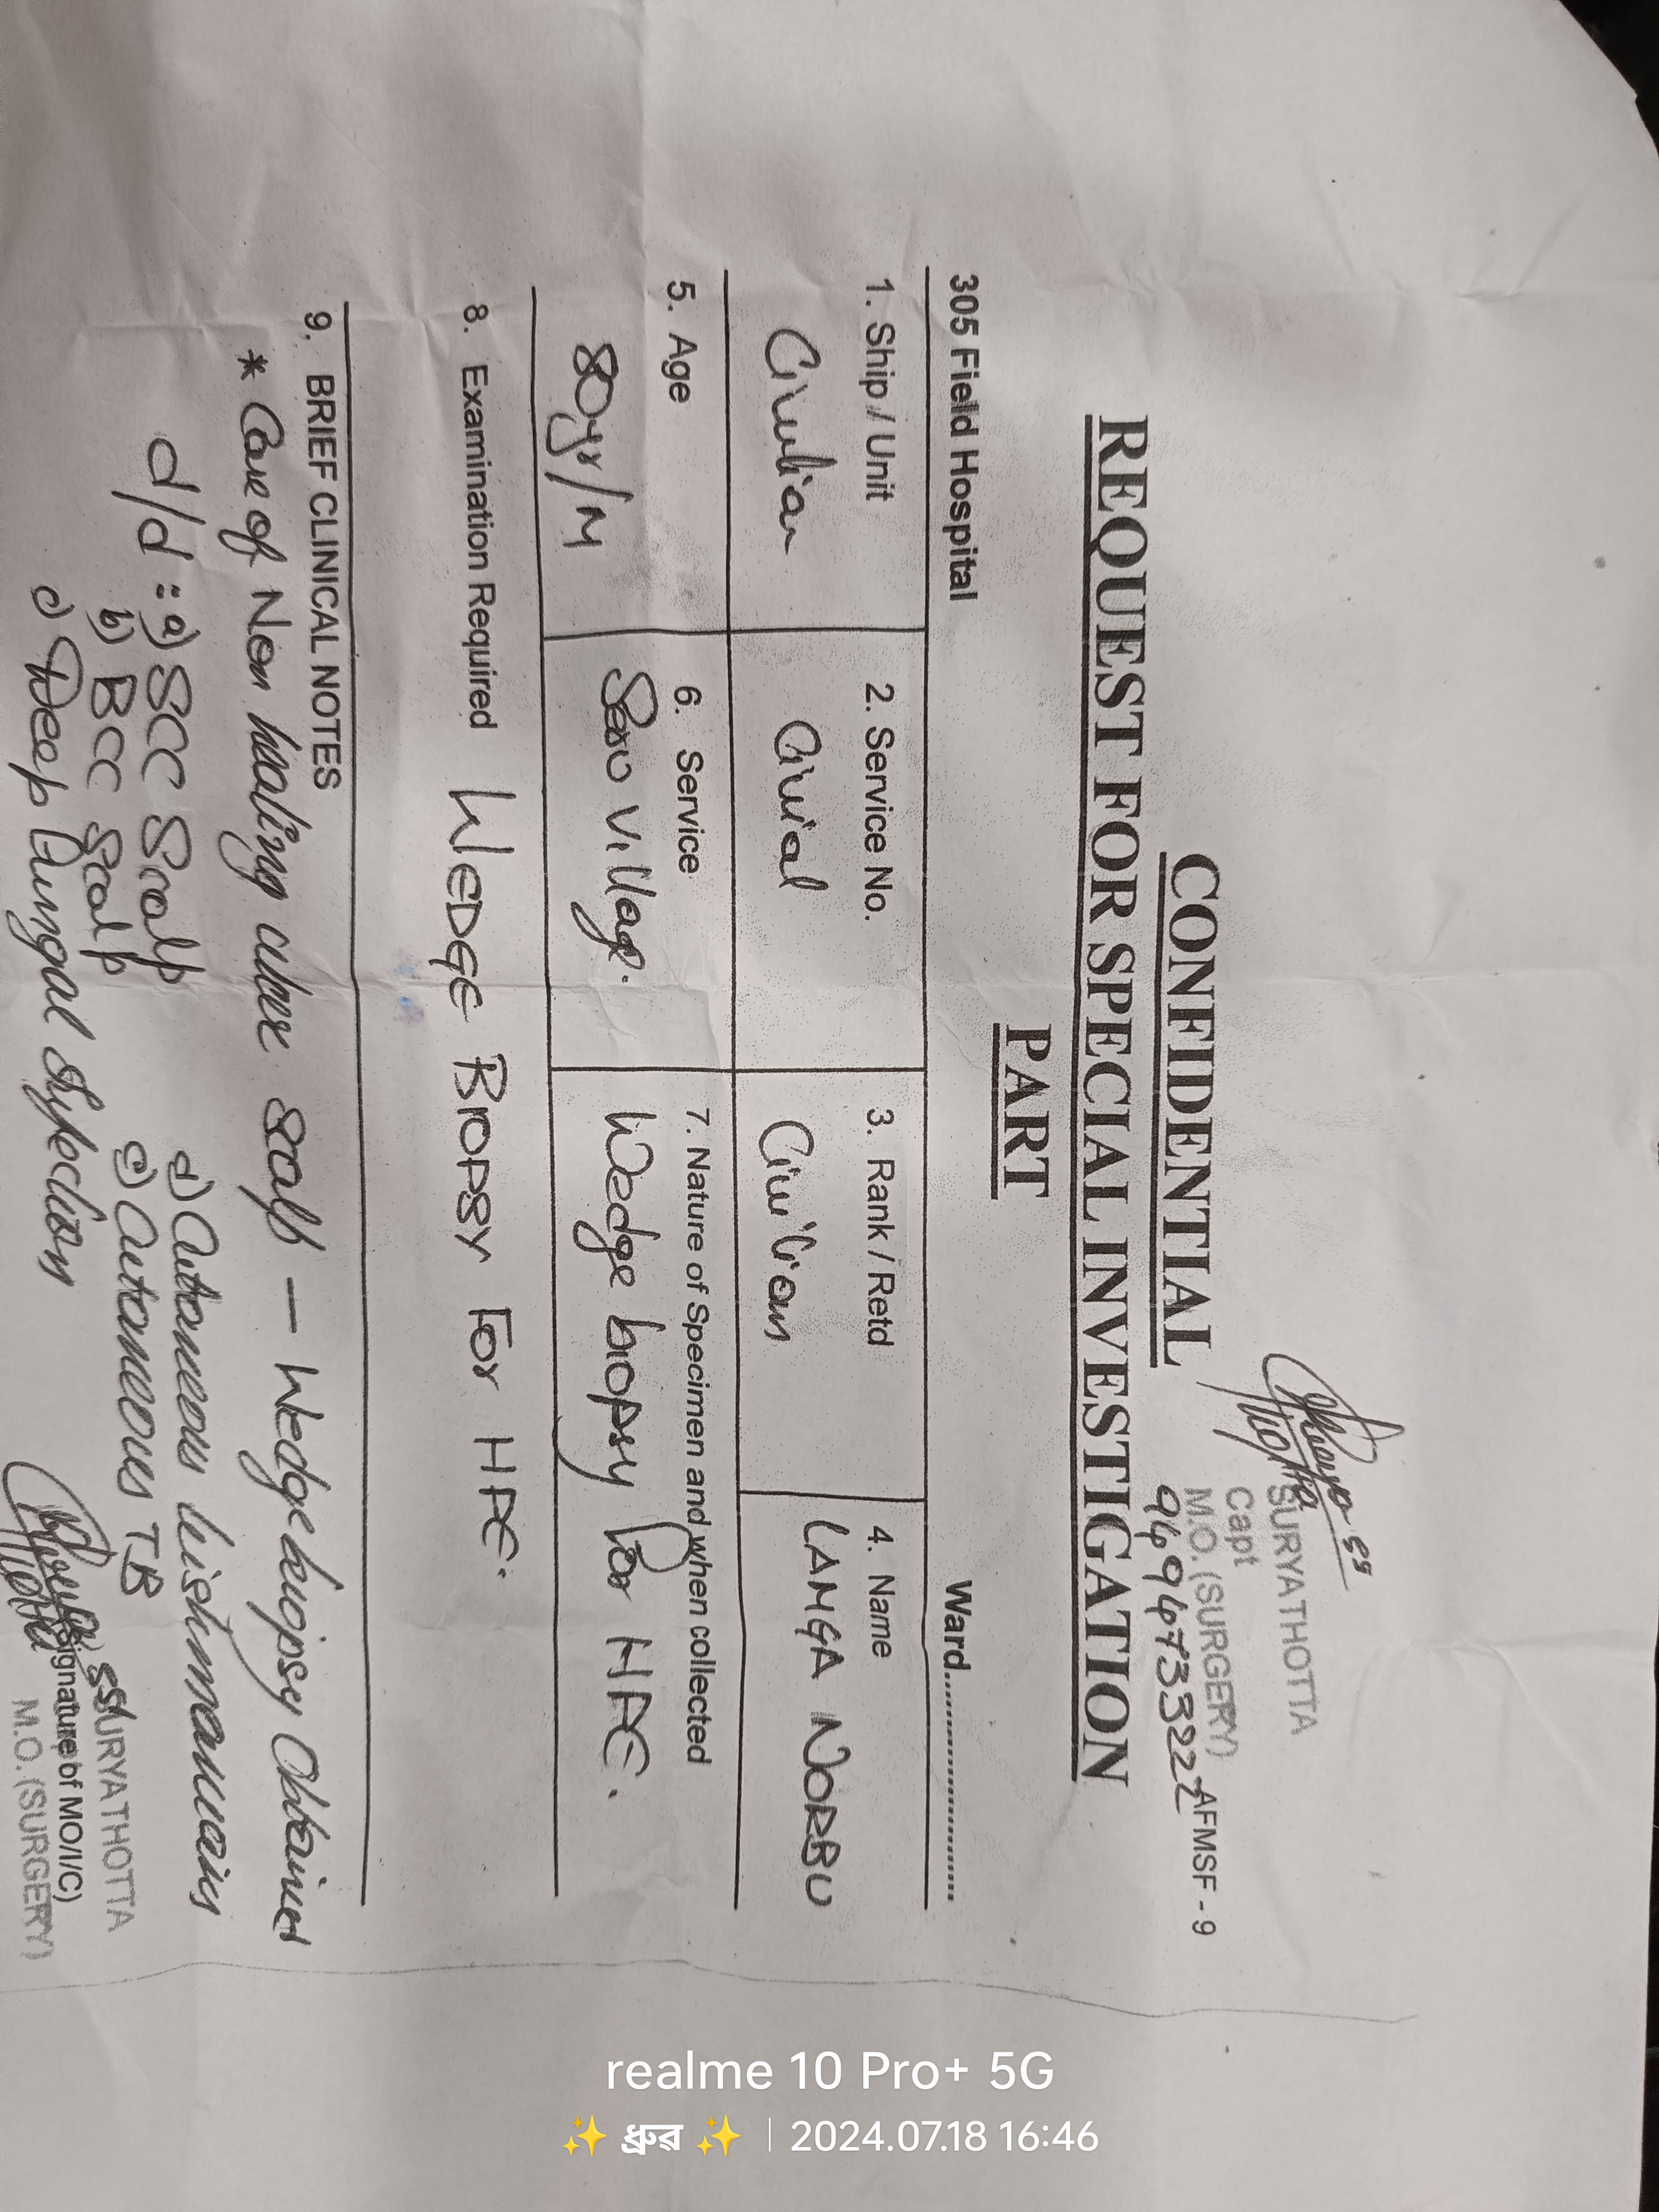 SS
SURYA THOTTA
Capt
M.O. (SURGERY)
9494733222
AFMSF - 9
CONFIDENTIAL
REQUEST FOR SPECIAL INVESTIGATION
PART
305 Field Hospital Ward..............................
1. Ship / Unit 2. Service No. 3. Rank / Retd 4. Name
Civilian Civial Civilian LAMGA NORBU
5. Age 6. Service 7. Nature of Specimen and when collected
80yr/M Village. Wedge biopsy For HPE.
8. Examination Required WEDGE BIOPSY For HPE.
9. BRIEF CLINICAL NOTES
* Case of Non healing ulcer scalp — Wedge biopsy Obtained
d/d : a) SCC Scalp d) Cutaneous lishmaniasis
b) BCC Scalp e) Cutaneous TB
c) Deep fungal Infection
SS
SURYA THOTTA
Signature of MO/I/C)
M.O. (SURGERY)
realme 10 Pro+ 5G
✨ ধ্রুব ✨ | 2024.07.18 16:46